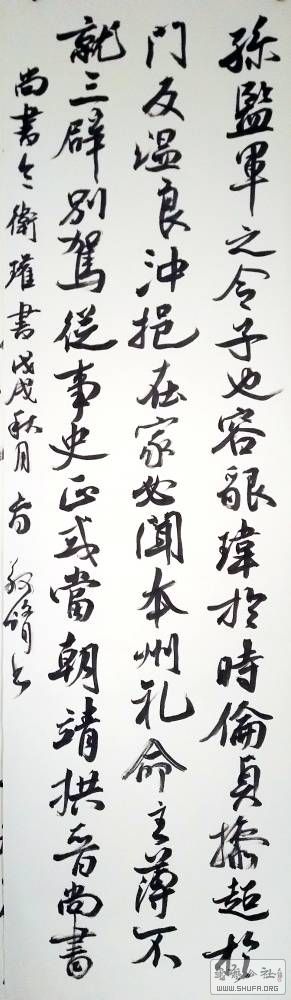 孫監軍之令子也容貌瑋於時倫貞操超於
門友温良沖挹在家必聞本州礼命主薄不
就三辟別駕従事史正式當朝靖拱晉尚書
尚書令衛瓘書戊戌秋月
WWW.SHUFA.ORG